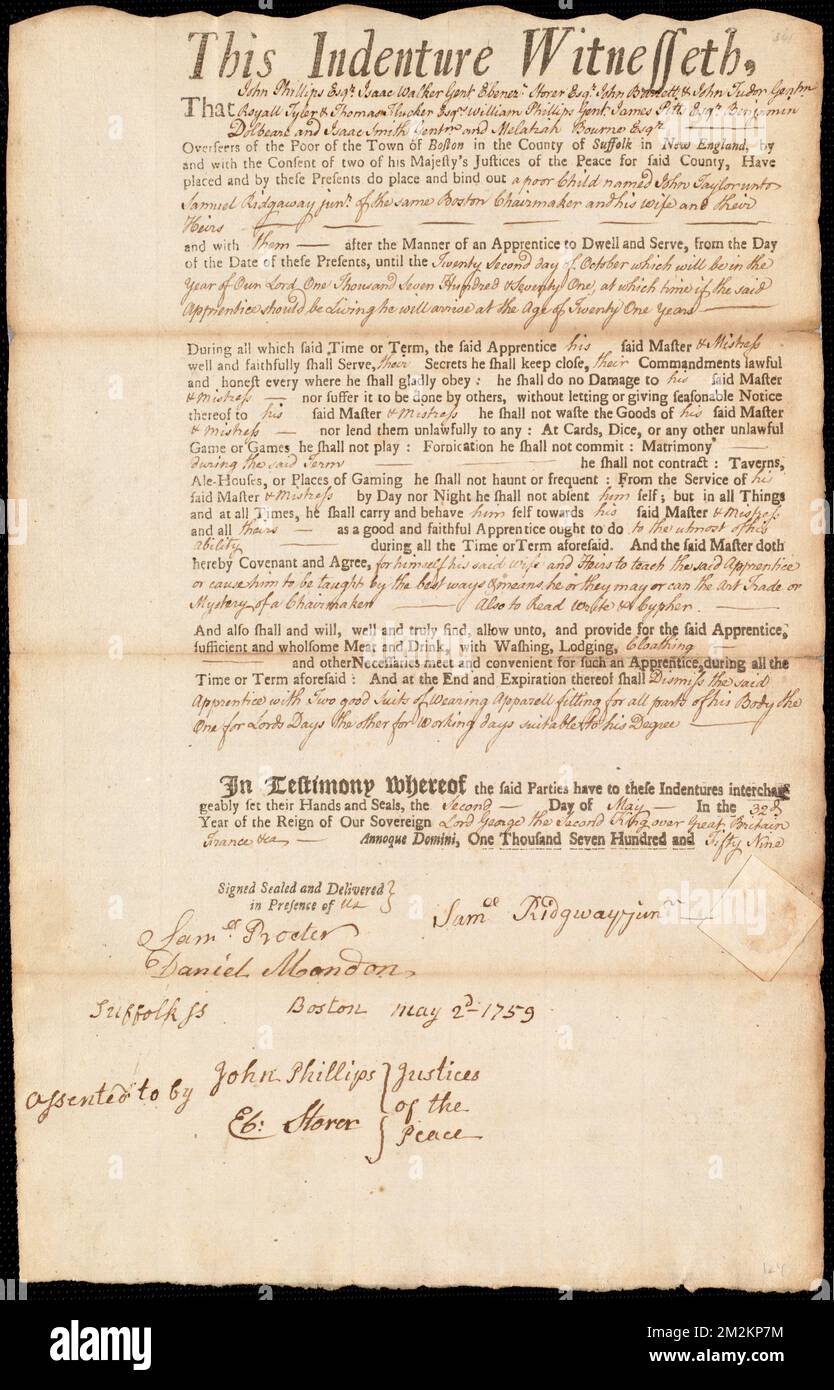 This Indenture Witnesseth,
John Phillips Esqr. Isaac Walker Gent Ebenezr. Storer Esqr. John & John Tudor Gentm
That Royall Tyler & Thomas Flucker Esqrs William Phillips Gent. James Pitts Esqr. Benjamin
Dolbeare and Isaac Smith Gentm and Melatiah Bourne Esqrs.
Overseers of the Poor of the Town of Boston in the County of Suffolk in New England, by
and with the Consent of two of his Majesty's Justices of the Peace for said County, Have
placed and by these Presents do place and bind out a poor Child named John Taylor unto
Samuel Ridgaway junr. of the same Boston Chairmaker and his wife and their
Heirs
and with them — after the Manner of an Apprentice to Dwell and Serve, from the Day
of the Date of these Presents, until the Twenty Second day of October which will be in the
Year of Our Lord One Thousand Seven Hundred & Seventy One, at which time if the said
Apprentice should be Living he will arrive at the Age of Twenty One Years
During all which said Time or Term, the said Apprentice his said Master & Mistress
well and faithfully shall Serve, their Secrets he shall keep close, their Commandments lawful
and honest every where he shall gladly obey : he shall do no Damage to his said Master
& Mistress — nor suffer it to be done by others, without letting or giving seasonable Notice
thereof to his said Master & Mistress he shall not waste the Goods of his said Master
& Mistress — nor lend them unlawfully to any : At Cards, Dice, or any other unlawful
Game or Games he shall not play : Fornication he shall not commit : Matrimony
during the said Term — he shall not contract : Taverns,
Ale-Houses, or Places of Gaming he shall not haunt or frequent : From the Service of his
said Master & Mistress by Day nor Night he shall not absent him self; but in all Things
and at all Times, he shall carry and behave him self towards his said Master & Mistress
and all theirs — as a good and faithful Apprentice ought to do to the utmost of his
ability — during all the Time or Term aforesaid. And the said Master doth
hereby Covenant and Agree, for himself his said wife and Heirs to teach the said Apprentice
or cause him to be taught by the best ways & means he or they may or can the Art Trade or
Mystery of a Chairmaker — Also to Read Write & Cypher.
And also shall and will, well and truly find, allow unto, and provide for the said Apprentice,
sufficient and wholsome Meat and Drink, with Washing, Lodging, Cloathing —
and other Necessaries meet and convenient for such an Apprentice, during all the
Time or Term aforesaid : And at the End and Expiration thereof shall Dismiss the said
Apprentice with Two good Suits of Wearing Apparell fitting for all parts of his Body the
One for Lords Days the other for Working days suitable to his Degree
In Testimony whereof the said Parties have to these Indentures interchan-
geably set their Hands and Seals, the Second — Day of May — In the 32d
Year of the Reign of Our Sovereign Lord George the Second King over Great Britain
France &ca — Annoque Domini, One Thousand Seven Hundred and Fifty Nine
Signed Sealed and Delivered
in Presence of Us
Samel Ridgway junr
Samel Procter
Daniel Mandon
Suffolk ss Boston may 2d 1759
assented to by John Phillips Justices
of the
Eb: Storer Peace
alamy
Image ID: 2M2KP7M
www.alamy.com